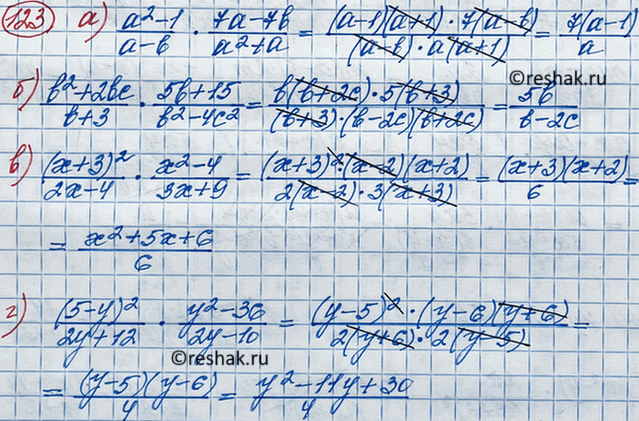 123 а) (a²-1)/(a-b) · (7a-7b)/(a²+a) = ((a-1)(a+1)·7(a-b))/((a-b)·a(a+1)) = 7(a-1)/a
©reshak.ru
б) (b²+2bc)/(b+3) · (5b+15)/(b²-4c²) = (b(b+2c)·5(b+3))/((b+3)·(b-2c)(b+2c)) = 5b/(b-2c)
в) (x+3)²/(2x-4) · (x²-4)/(3x+9) = ((x+3)²·(x-2)(x+2))/(2(x-2)·3(x+3)) = ((x+3)(x+2))/6 =
= (x²+5x+6)/6
г) (5-y)²/(2y+12) · (y²-36)/(2y-10) = ((y-5)²·(y-6)(y+6))/(2(y+6)·2(y-5)) =
©reshak.ru
= ((y-5)(y-6))/4 = (y²-11y+30)/4